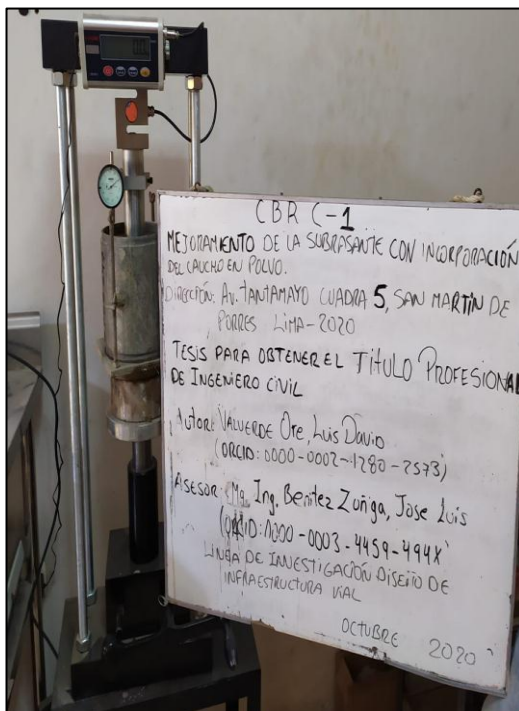 CBR C-1
MEJORAMIENTO DE LA SUBRASANTE CON INCORPORACIÓN
DEL CAUCHO EN POLVO.
DIRECCIÓN: Av. TANTAMAYO CUADRA 5, SAN MARTIN DE
PORRES LIMA-2020
TESIS PARA OBTENER EL TITULO PROFESIONAL
DE INGENIERO CIVIL
Autor: VALVERDE Ore, Luis David
(ORCID: 0000-0002-1280-2573)
ASESOR: Mg. Ing. Benitez Zuñiga, Jose Luis
(ORCID: 0000-0003-4459-494X)
LINEA DE INVESTIGACIÓN DISEÑO DE
INFRAESTRUCTURA VIAL
OCTUBRE 2020